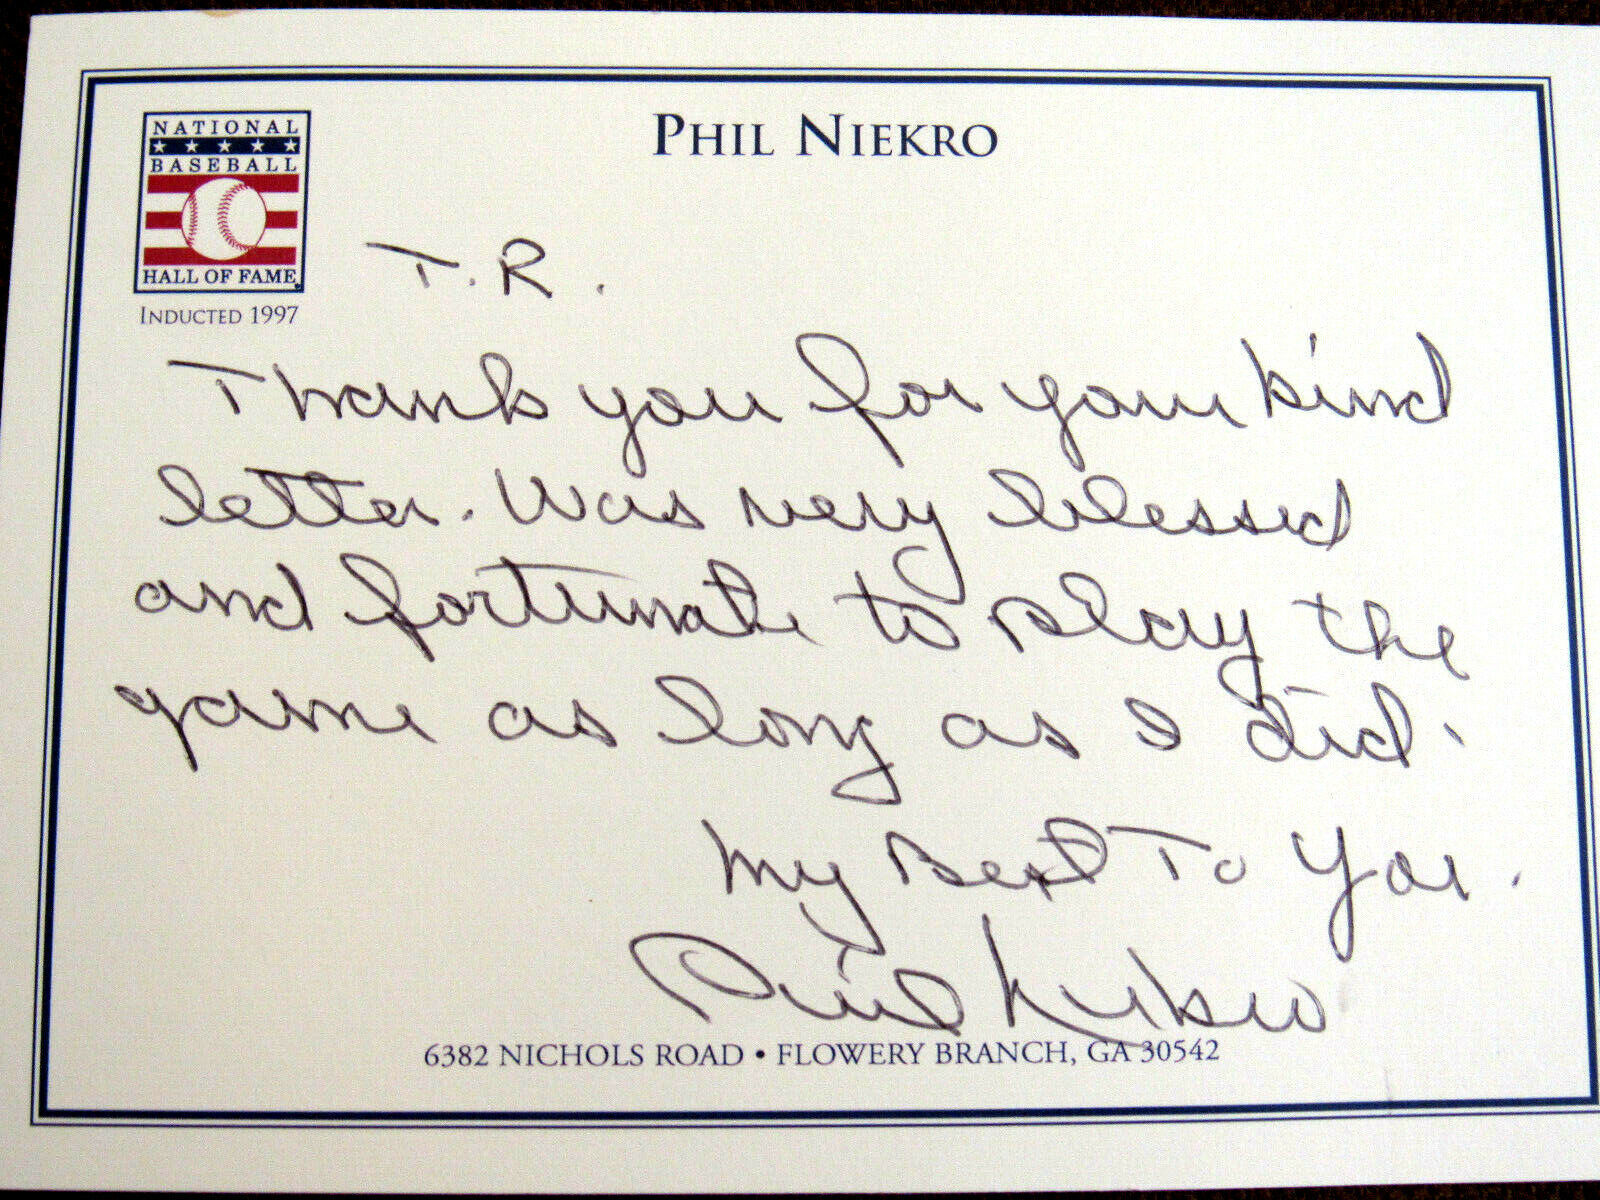 NATIONAL
BASEBALL
HALL OF FAME
INDUCTED 1997
PHIL NIEKRO
T.R.
Thank you for your kind
letter. Was very blessed
and fortunate to play the
game as long as I did.
My Best To You.
Phil Niekro
6382 NICHOLS ROAD • FLOWERY BRANCH, GA 30542